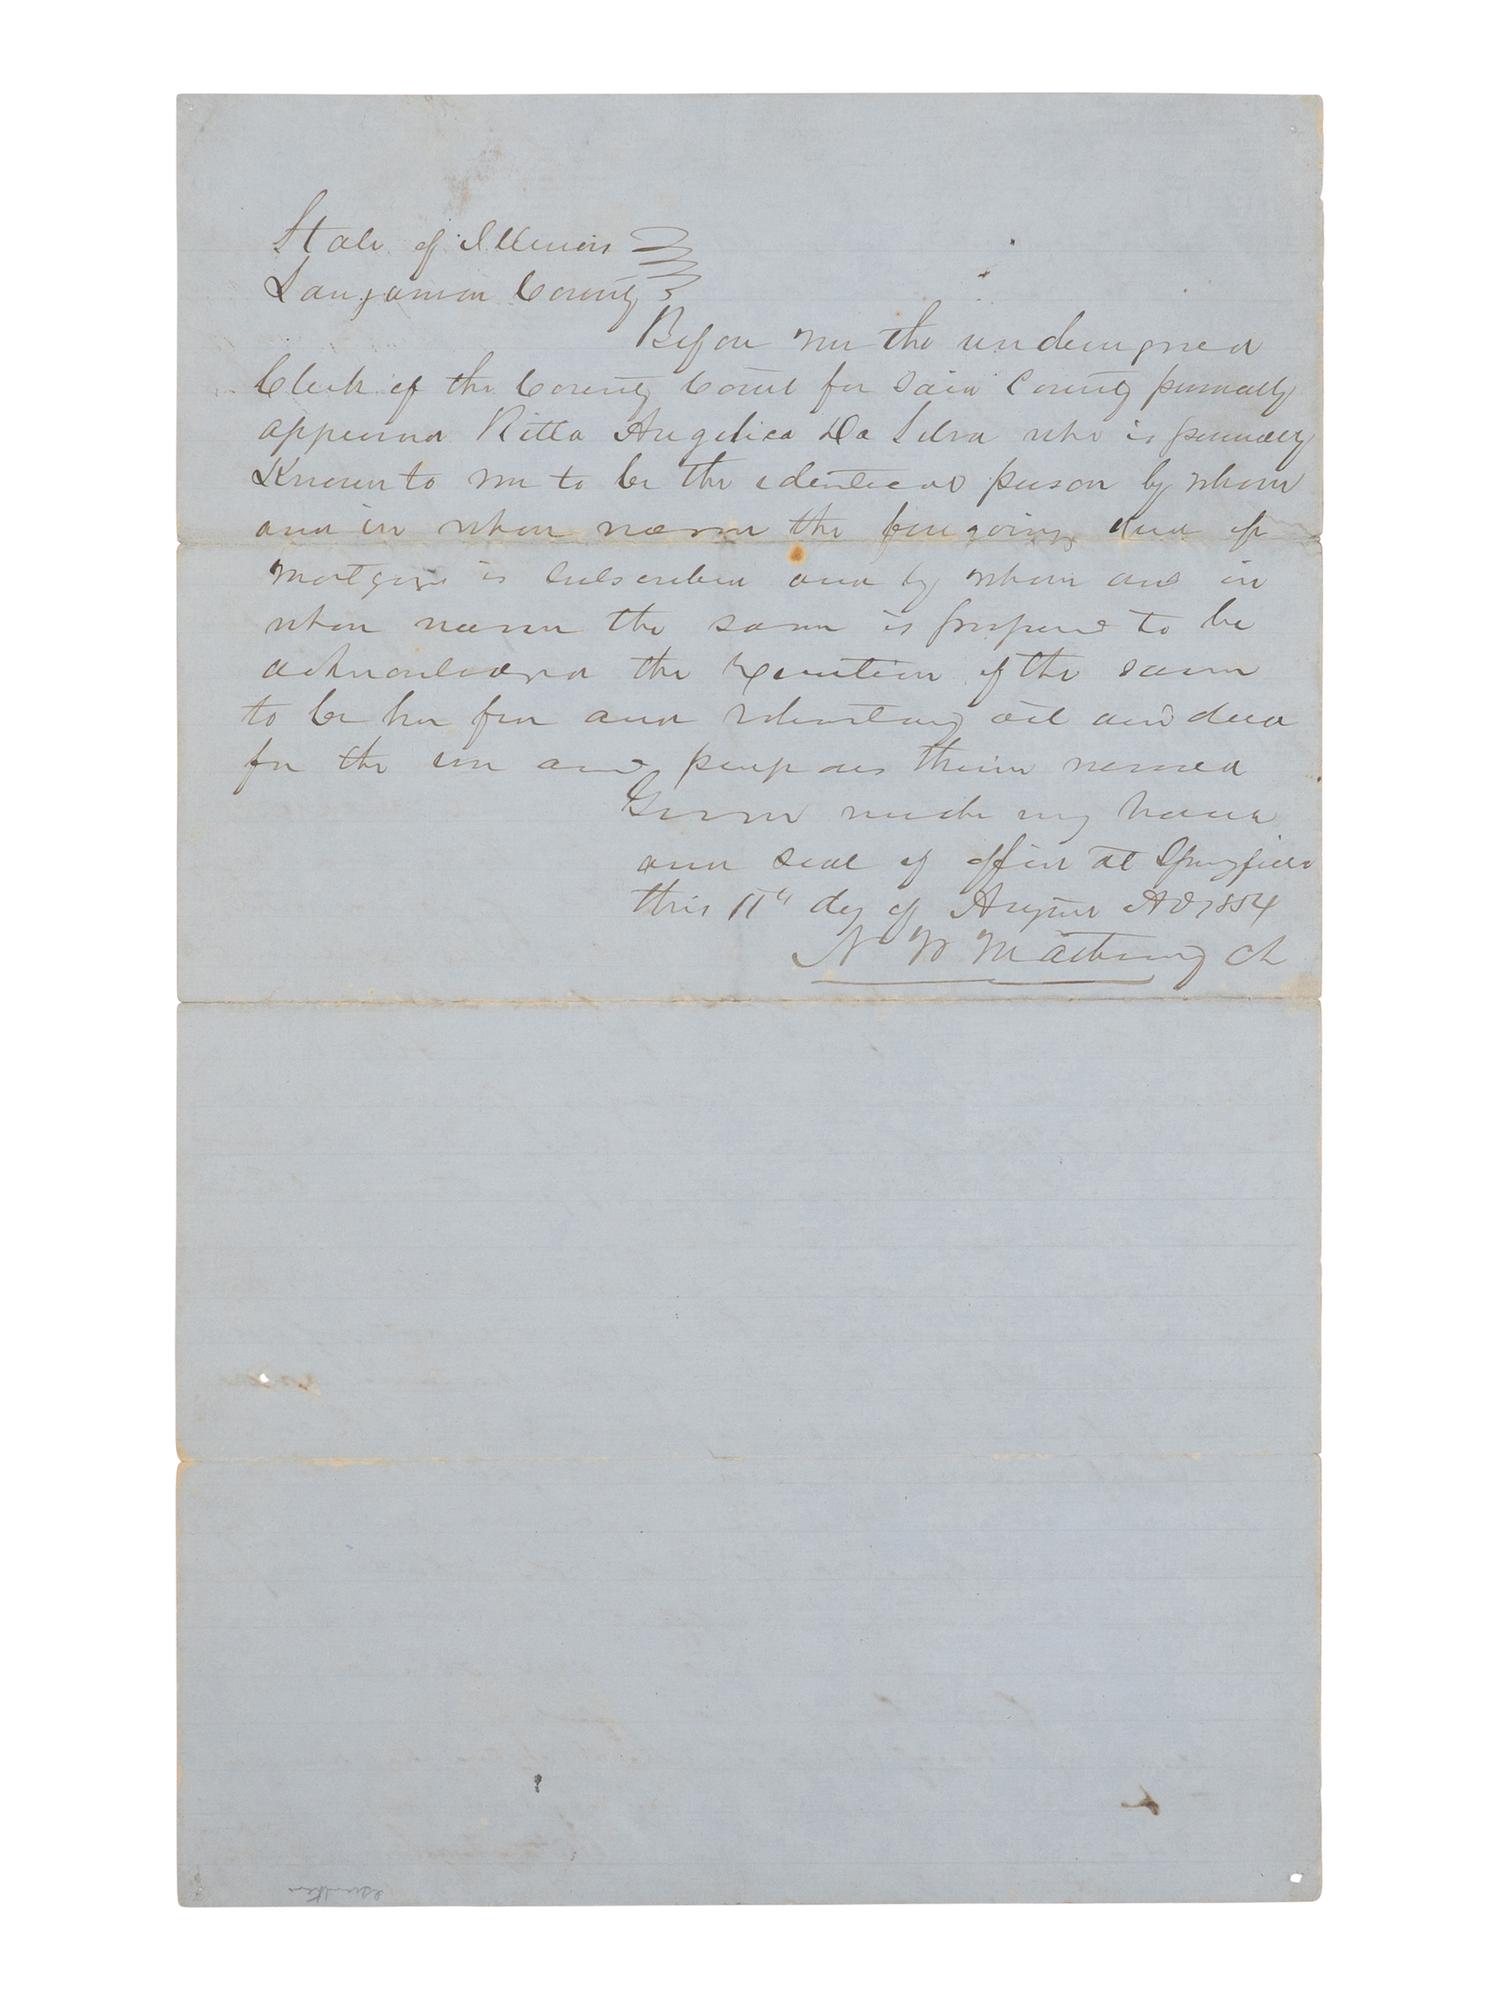 State of Illinois
Sangamon County
Before me the undersigned
Clerk of the County Court for said County personally
appeared Ritta Angelica Da Silva who is personally
Known to me to be the identical person by whom
and in whose name the foregoing deed of
mortgage is subscribed and by whom and in
whose name the same is proposed to be
acknowledged the Execution of the same
to be her free and voluntary act and deed
for the use and purposes therein named
Given under my hand
and seal of office at Springfield
this 11th day of August AD 1854
N W Matheny Clk